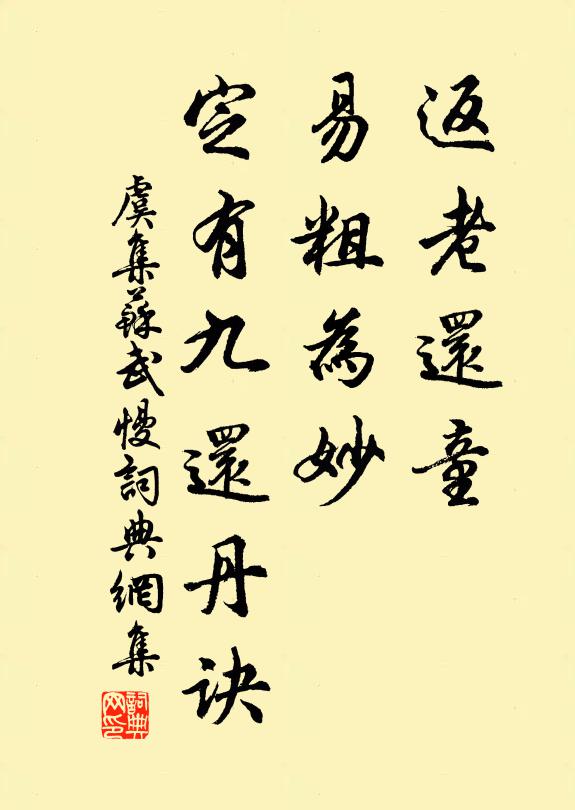 返老還童
易粗為妙
定有九還丹訣
虞集蘇武慢詞典網集
詞典网印